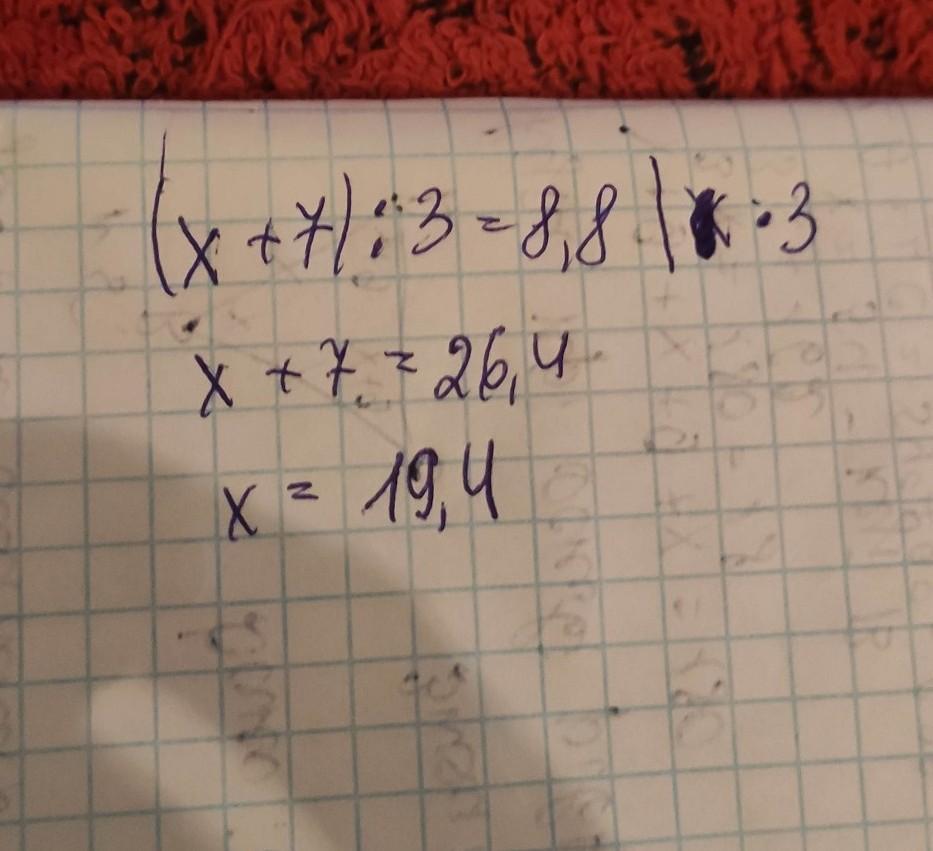 (x + 7) : 3 = 8,8 | · 3
x + 7 = 26,4
x = 19,4